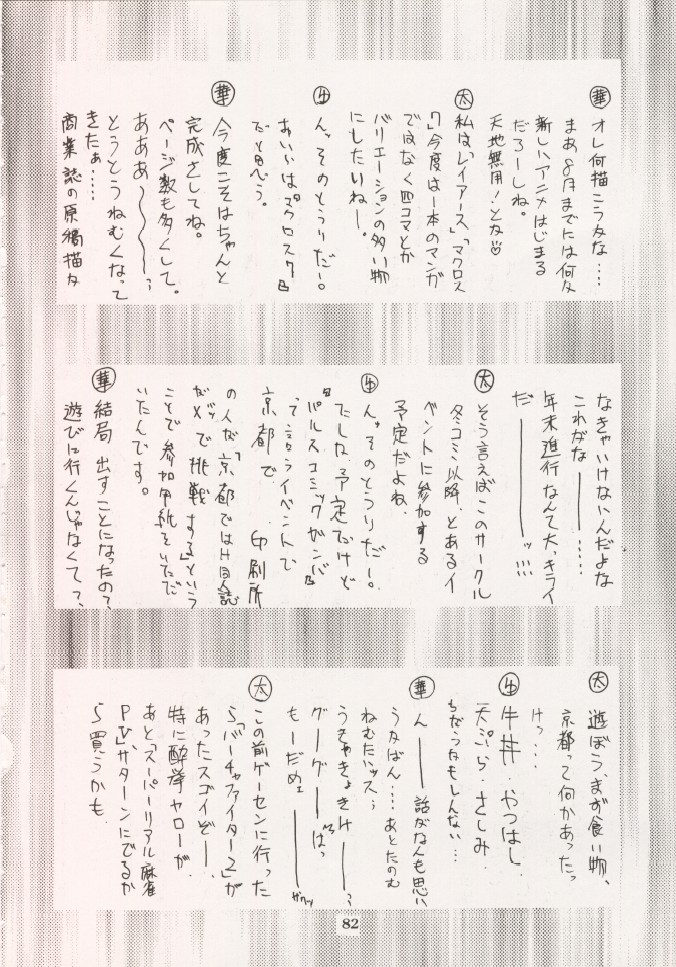 華 オレ何描こうかな……
まあ8月までには何か
新しいアニメはじまる
だろーしね。
天地無用!とか♡
太 私は「レイアース」「マクロス
7」今度は1本のマンガ
ではなく四コマとか
バリエーションの多い物
にしたいねー。
牛 んっそのとうりだー。
あいらは『マクロス7』
だと思う。
華 今度こそはちゃんと
完成さしてね。
ページ数も多くして。
あああ〜〜〜〜
とうとうねむくなって
きたぁ……
商業誌の原稿描か
なきゃいけないんだよな
これがな————……
年末進行なんて大、キライ
だ————ッ!!!
太 そう言えばこのサークル
冬コミ以降、とあるイ
ベントに参加する
予定だよね、
牛 んっそのとうりだー。
たしか、予定だけど
『パルスコミックがンバ』
って言うライベントで
京都で 印刷所
の人が「京都ではH同人誌
で挑戦する」という
ことで参加用紙をいただ
いたんです。
華 結局出すことになったの?
遊びに行くんじゃなくて?、
太 遊ぼう、まず食い物、
京都って何かあったっ
けっ…、
牛 牛丼・やつはし、
天ぷら・さしみ、
ちがうかもしんない…
華 ん——話がなんも思い
うかばん…あとたのむ
ねむたいッス
うきゃきょきけ——
グーグー——ばっ
もーだめェ————ガクッ
太 この前ゲーセンに行った
ら「バーチャファイター2」が
あったスゴイぞ——
特に酔拳ヤローが、
あと「スーパーリアル麻雀
PⅤ」がサターンにでるか
ら買うかも、
82